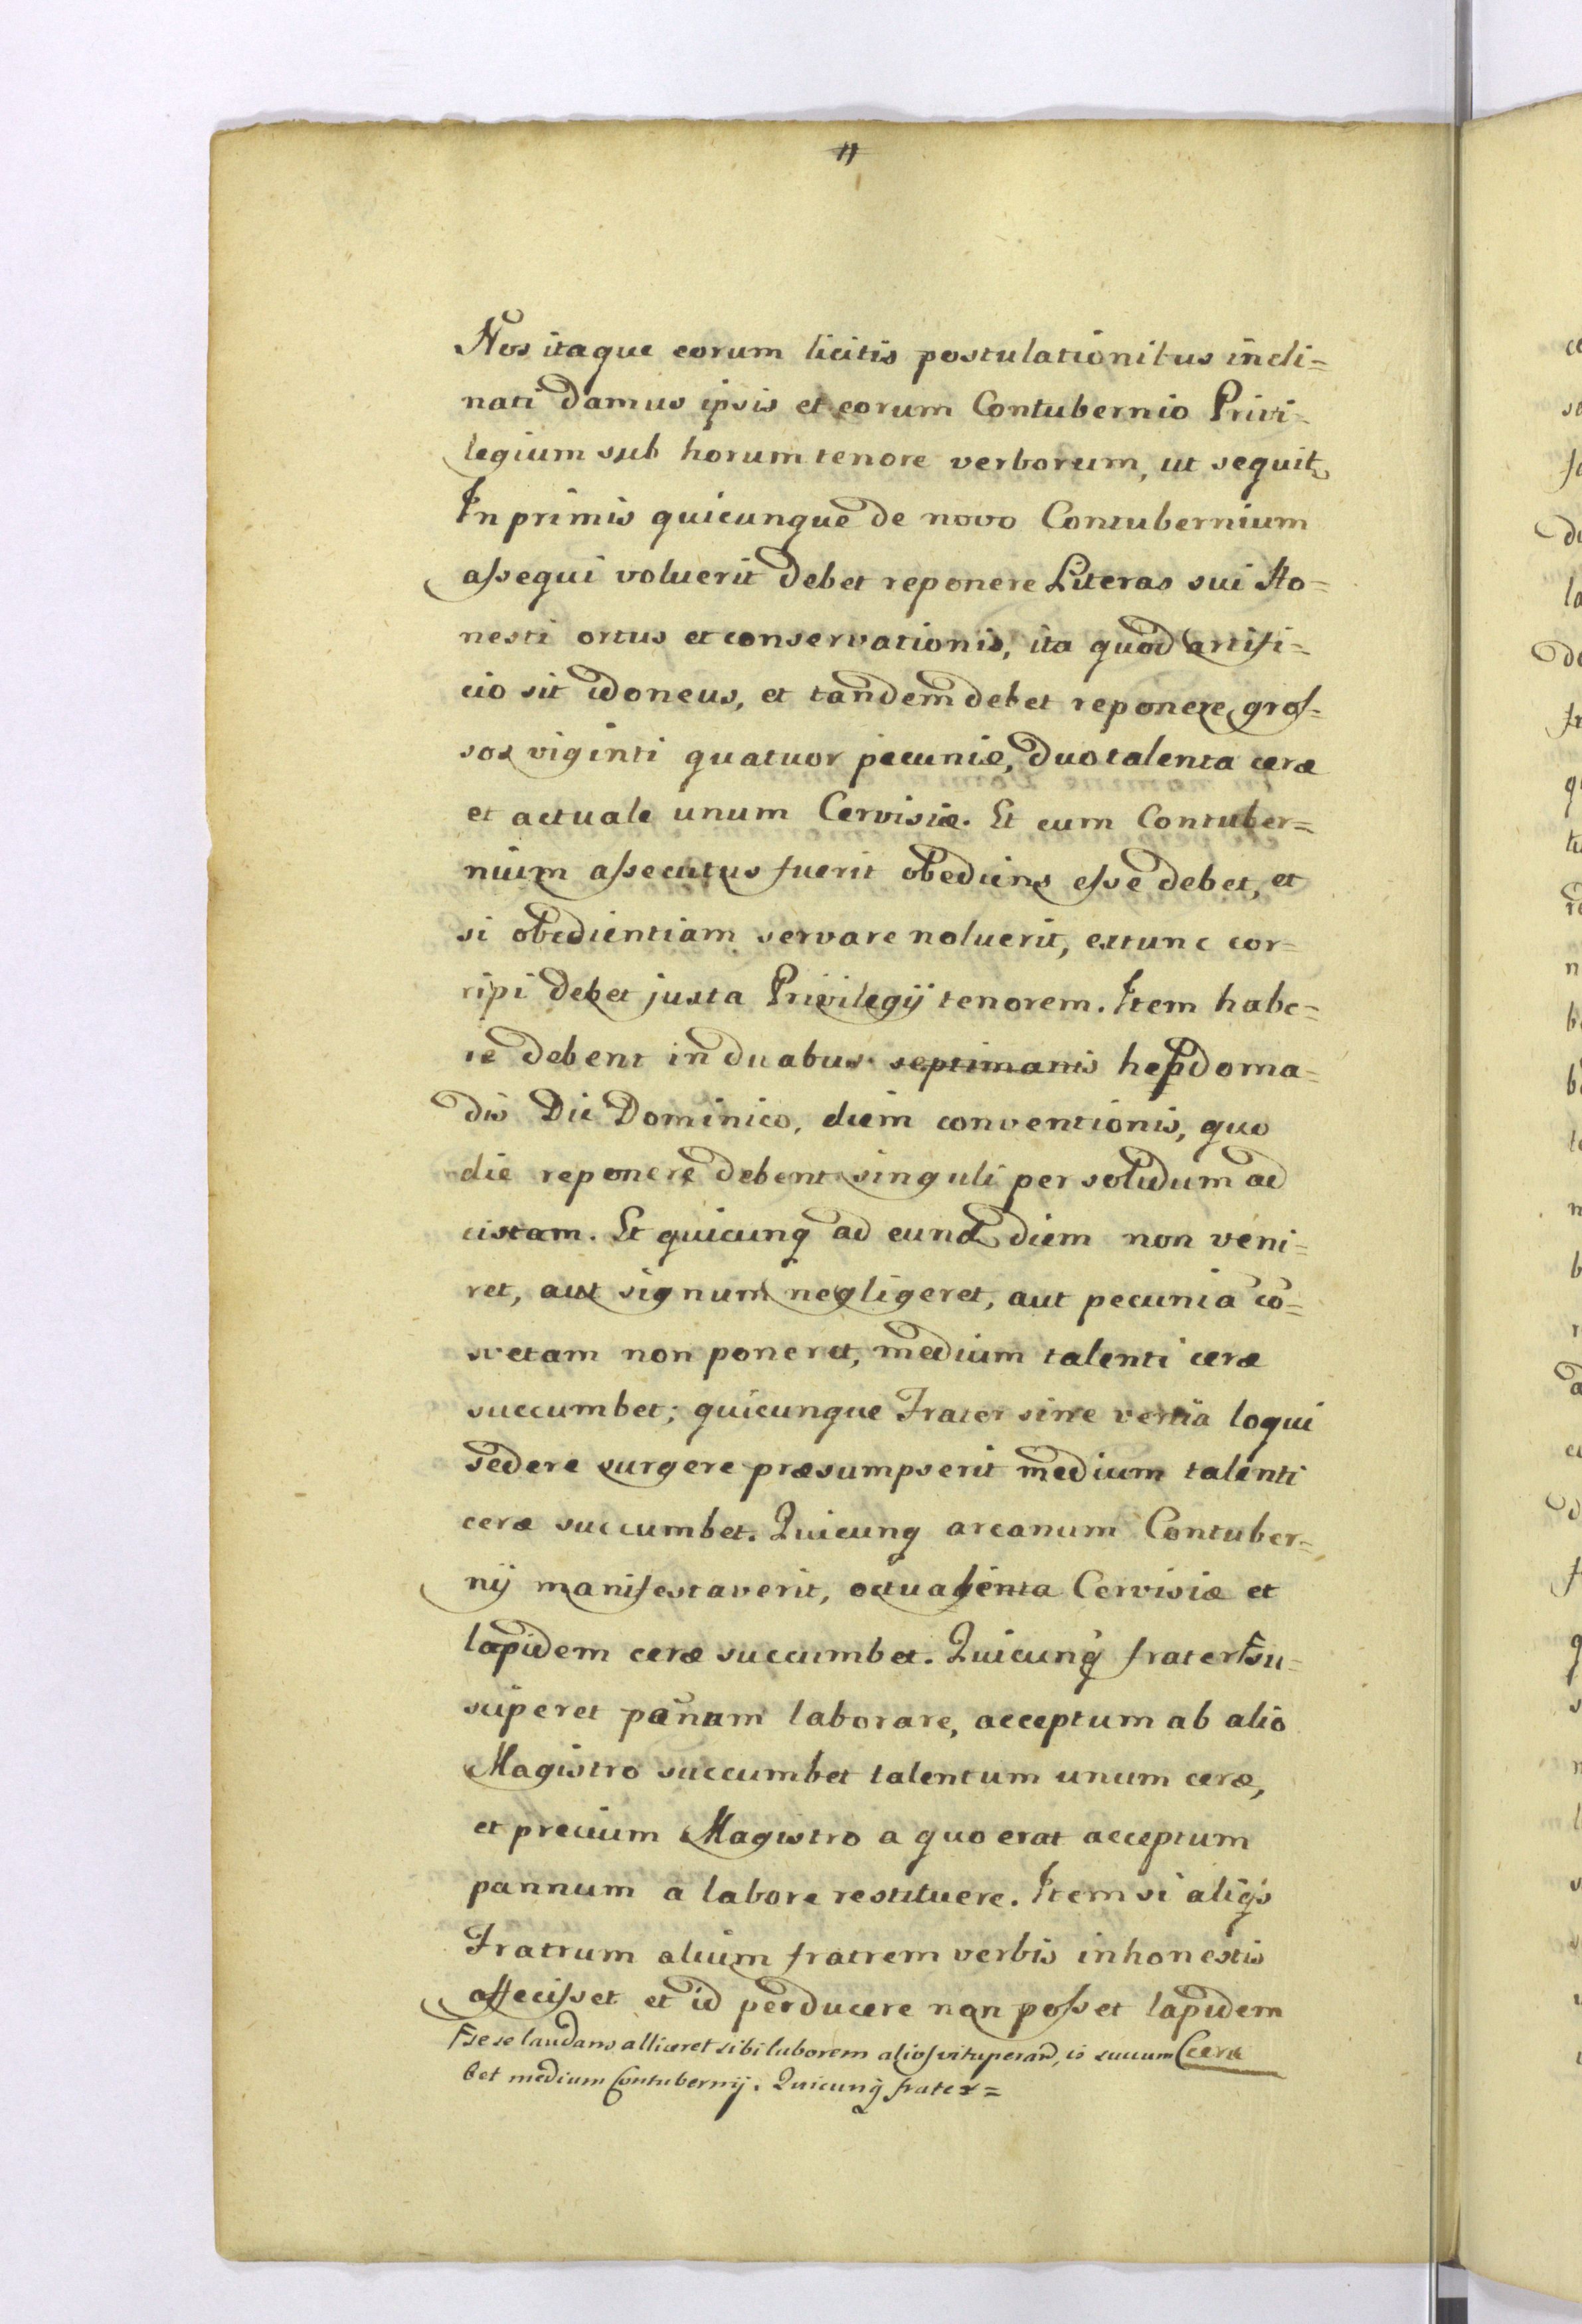 11
Nos itaque eorum licitis postulationibus incli=
nati damus ipsis et eorum Contubernio Privi=
legium sub horum tenore verborum, ut sequit
In primis quicunque de novo Contubernium
assequi voluerit debet reponere Literas sui Ho=
nesti ortus et conservationis, ita quod artifi=
cio sit idoneus, et tandem debet reponere gros=
sos viginti quatuor pecuniæ, duo talenta ceræ
et actuale unum Cervisiæ. Et cum Contuber=
nium assecutus fuerit obediens esse debet, et
si obedientiam servare noluerit, extunc cor=
ripi debet juxta Privilegij tenorem. Item habe=
re debent in duabus septimanis hebdoma=
dis Die Dominico, diem conventionis, quo
die reponere debent singuli per solidum ad
cistam. Et quicunq ad eund diem non veni=
ret, aut signum negligeret, aut pecuniā cō=
svetam non poneret, medium talenti ceræ
succumbet; quicunque Frater sine venia loqui
sedere surgere præsumpserit medium talenti
ceræ succumbet. Quicunq arcanum Contuber=
nij manifestaverit, octualenta Cervisiæ et
lapidem ceræ succumbet. Quicunq frater Fsu=
sciperet pannum laborare, acceptum ab alio
Magistro succumbet talentum unum ceræ,
et precium Magistro a quo erat acceptum
pannum a labore restituere. Item si aliq's
Fratrum alium fratrem verbis inhonestis
affecisset et id perducere non posset lapidem
F sese laudans alliceret sibi laborem alios vituperand, is succum ceræ
bet medium Contubernij. Quicunq frater=